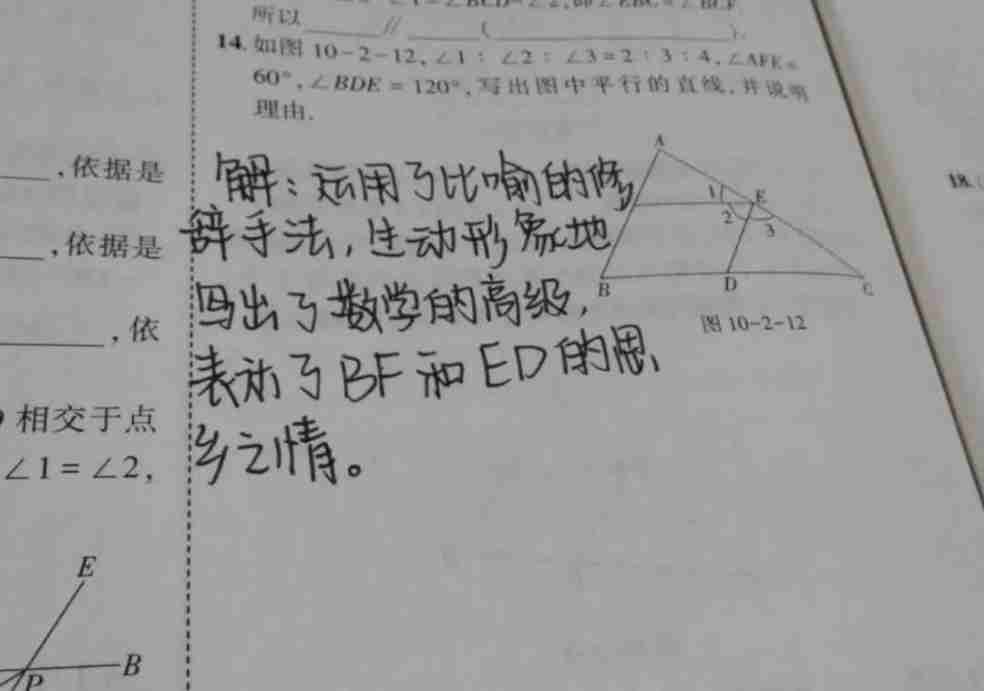 所以 ∥ ( ).
14. 如图 10-2-12, ∠1 : ∠2 : ∠3 = 2 : 3 : 4, ∠AFE =
60°, ∠BDE = 120°, 写出图中平行的直线, 并说明
理由.
,依据是
,依据是
,依
相交于点
∠1 = ∠2,
解：运用了比喻的修
辞手法，生动形象地
写出了数学的高级，
表示了BF和ED的思
乡之情。
A
1
E
2
3
B
D
C
图 10-2-12
E
B
P
18.